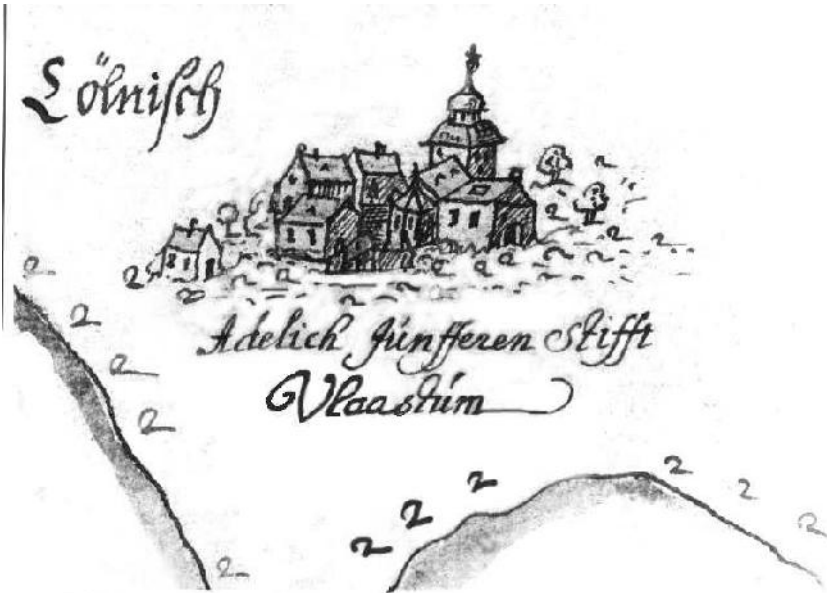 Cölnisch
Adelich Júnfferen Stifft
Vlaastúm